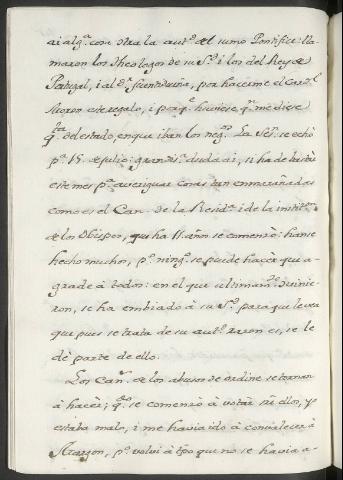 ai alg.ª con otra la aut.ᵈ del sumo Pontifice: lla
maron los Theologos de su S.ᵈ i los del Rey de
Portugal, i al D.ʳ Fuentidueña, por hacerme el Card.ˡ
este regalo, i porq.ᵉ huviese q.ⁿ me diese
q.ᵗᵃ del estado en que iban los neg.ᵒˢ La Ses.ⁿ se echò
p.ª 15. de Julio: grandis.ª duda ai, si ha de bastar
este mes p.ª averiguar cosas tan enmarañadas
como es el Can. de la Resid.ª i de la instit.ᵒⁿ
de los Obispos, que ha 11. años se comenzò: hanse
hecho muchos, p.º ning.º se puede hacer que a-
grade à todos: en el que ultimam.ᵗᵉ hicie
ron, se ha embiado à su S.ᵈ para que le vea
que pues se trata de su aut.ᵈ razon es, se le
dè parte de ello.
Los Can.ˢ de los abusos de ordine se tornan
à hacer; q.ᵈᵒ se comenzò à votar sre ellos, yo
estaba malo, i me havia ido à convalecer à
p.º volvi à tpo que no se havia a-